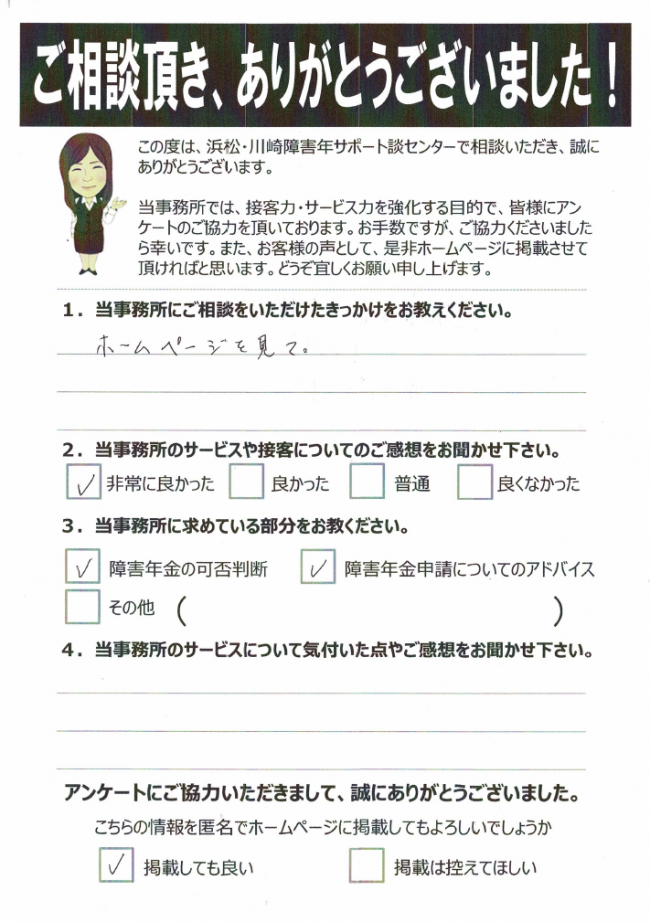 ご相談頂き、ありがとうございました！
この度は、浜松・川崎障害年サポート談センターで相談いただき、誠に
ありがとうございます。
当事務所では、接客力・サービス力を強化する目的で、皆様にアン
ケートのご協力を頂いております。お手数ですが、ご協力くださいました
ら幸いです。また、お客様の声として、是非ホームページに掲載させて
頂ければと思います。どうぞ宜しくお願い申し上げます。
１．当事務所にご相談をいただけたきっかけをお教えください。
ホームページを見て。
２．当事務所のサービスや接客についてのご感想をお聞かせ下さい。
✓ 非常に良かった 良かった 普通 良くなかった
３．当事務所に求めている部分をお教ください。
✓ 障害年金の可否判断 ✓ 障害年金申請についてのアドバイス
その他 （ ）
４．当事務所のサービスについて気付いた点やご感想をお聞かせ下さい。
アンケートにご協力いただきまして、誠にありがとうございました。
こちらの情報を匿名でホームページに掲載してもよろしいでしょうか
✓ 掲載しても良い 掲載は控えてほしい